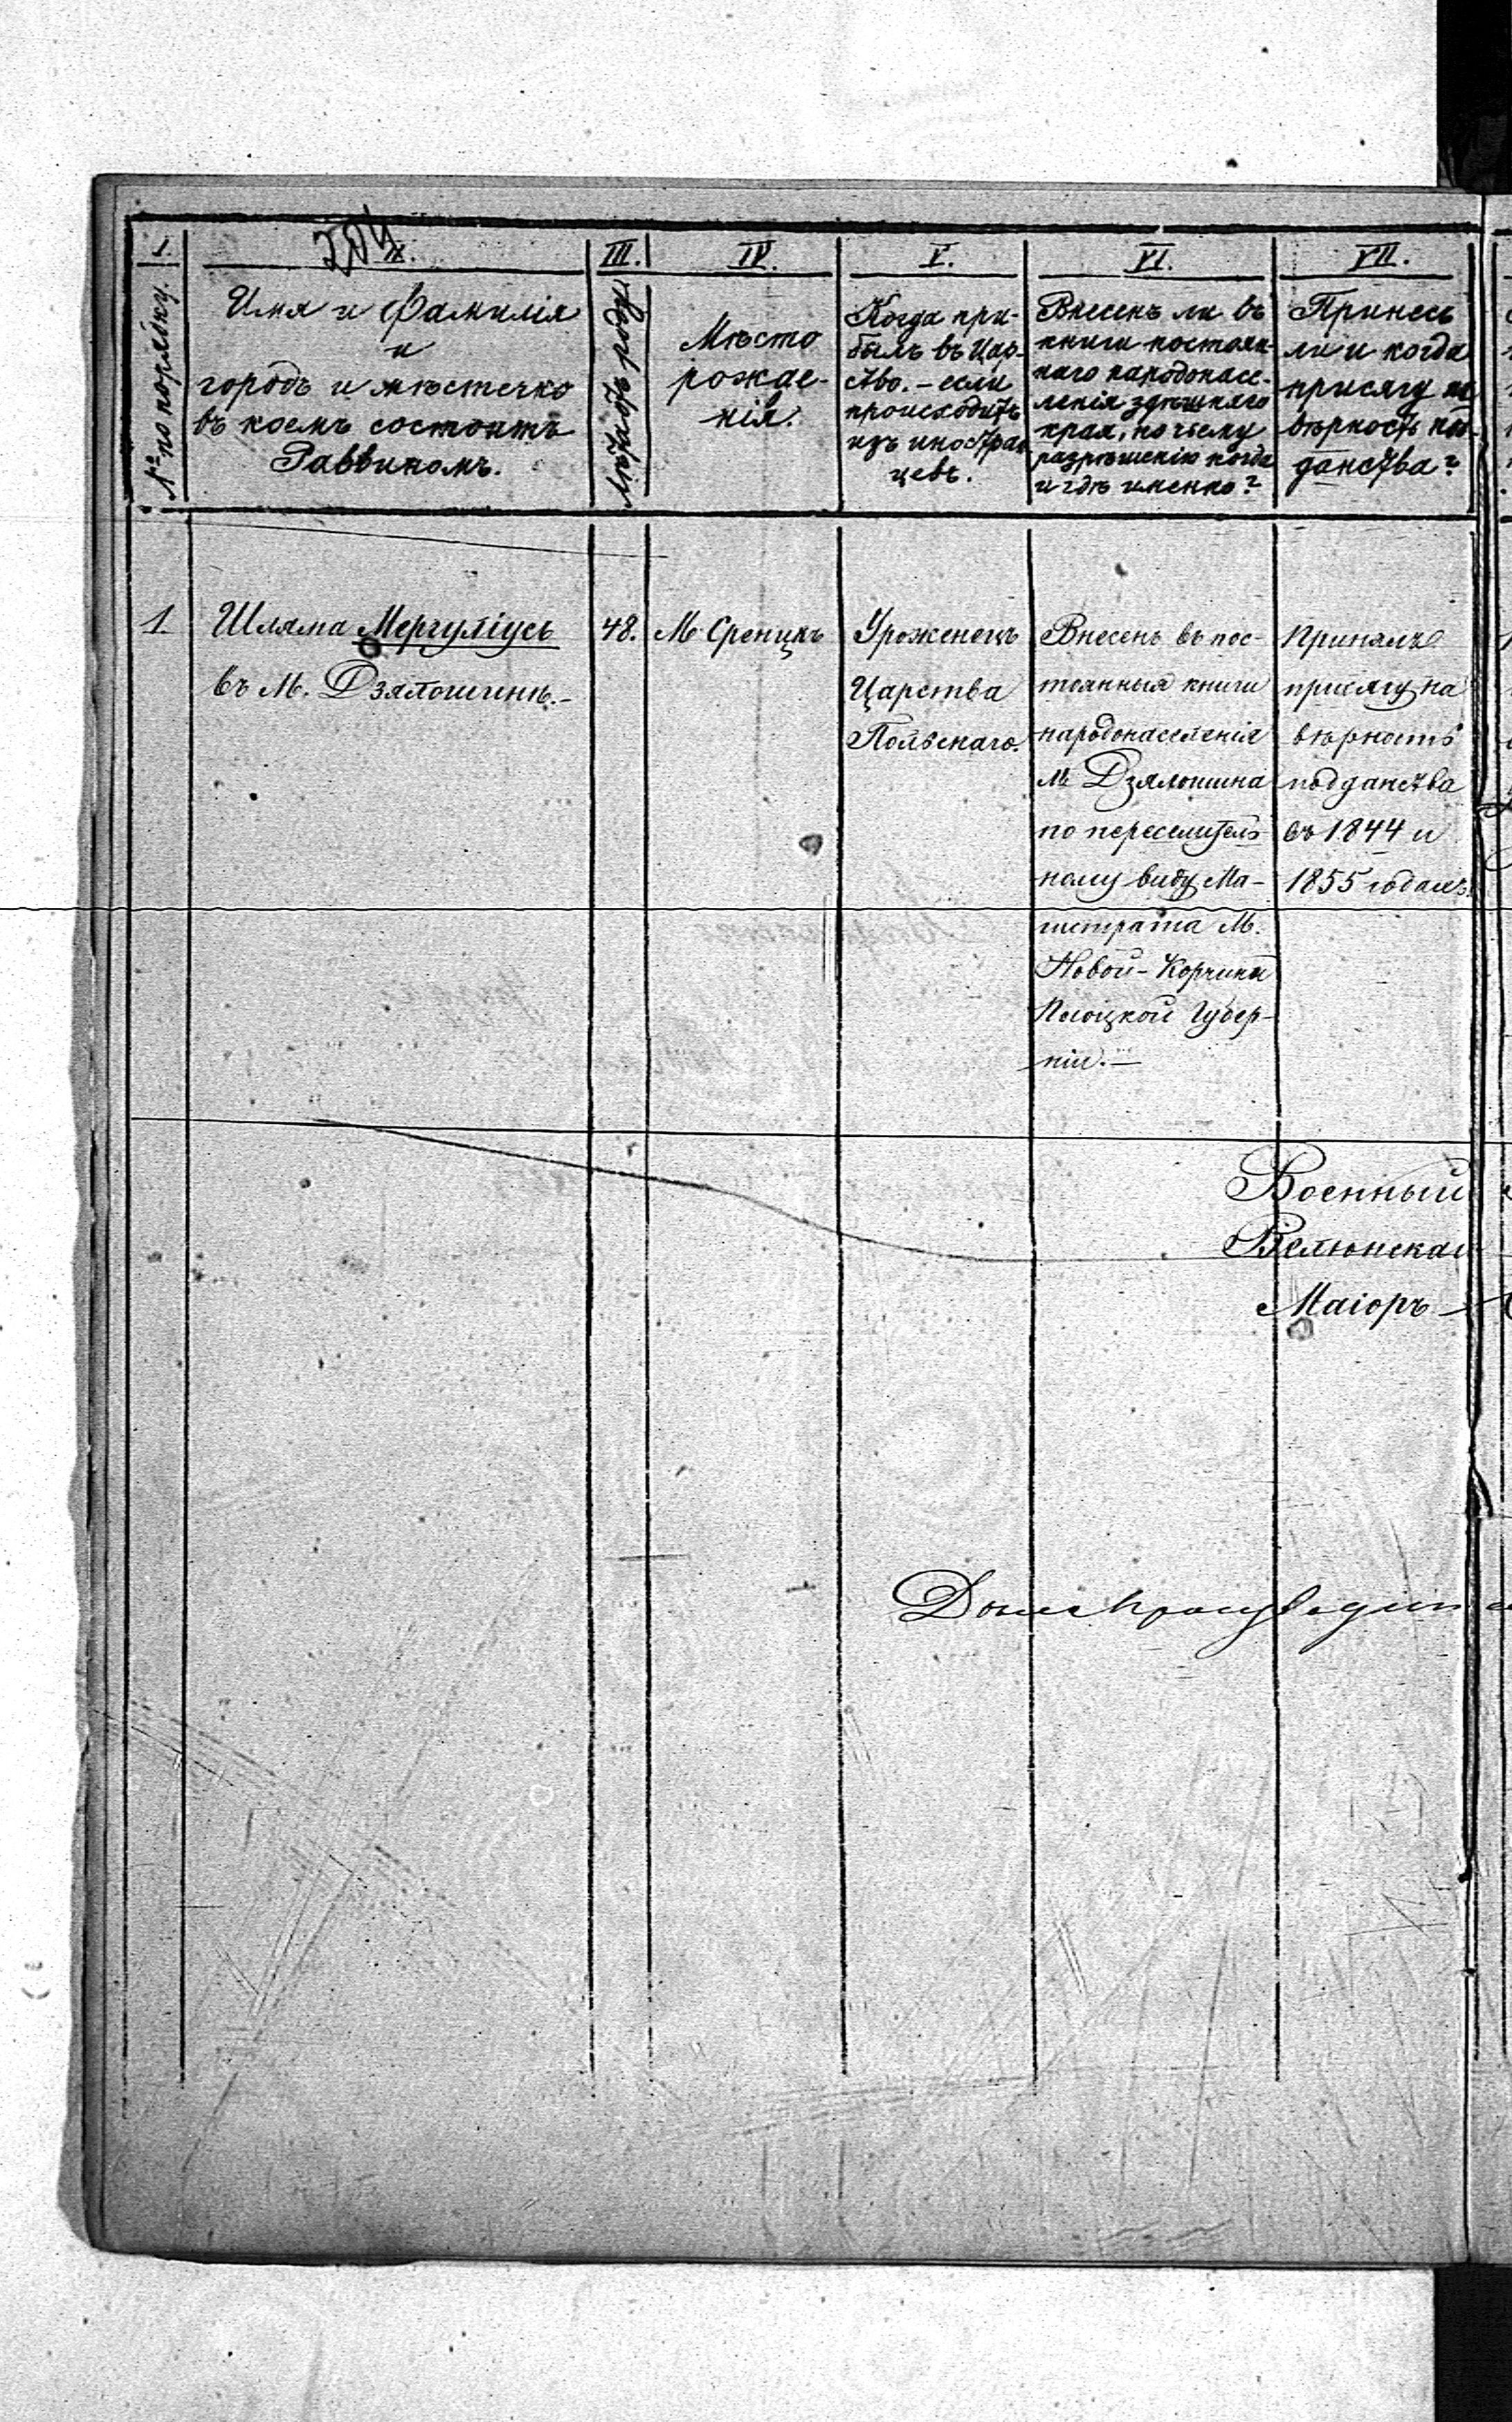 I.
II.
204
III.
IV.
V.
VI.
VII.
№ по порядку.
Имя и Фамилія
и
городъ и мѣстечко
въ коемъ состоитъ
Раввиномъ.
Мѣсто
рожде-
нія.
Когда при-
былъ въ Цар-
ство. – если
происходитъ
изъ иностран
цевъ.
Внесенъ ли въ
книги постоян-
наго народонасе-
ленія здѣшняго
края, по чьему
разрѣшенію когда
и гдѣ именно?
Принесъ
ли и когда
присягу на
вѣрность под-
данства?
1.
Шляма Мергуліусъ
въ М. Дзялошинѣ.–
48.
М.
Уроженецъ
Царства
Польскаго.
Внесенъ въ пос-
тоянныя книги
народонаселенія
М Дзялошина
по переселитель
ному виду Ма-
гистрата М.
Новой-Корчина
Губер-
ніи.–
Принялъ
присягу на
вѣрность
подданства
въ 1844 и
1855 годахъ.
Военный
Велюнскаг
Маіоръ